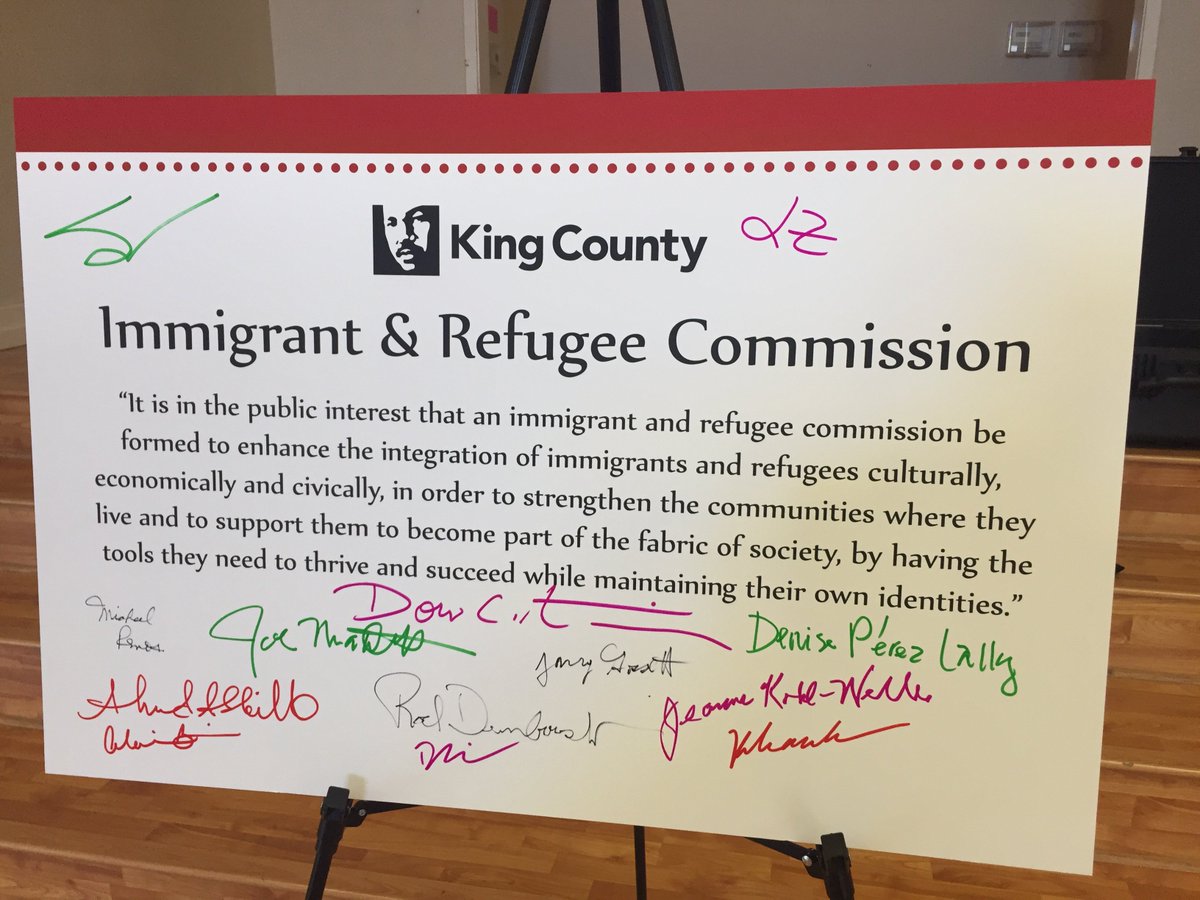 King County
Immigrant & Refugee Commission
“It is in the public interest that an immigrant and refugee commission be
formed to enhance the integration of immigrants and refugees culturally,
economically and civically, in order to strengthen the communities where they
live and to support them to become part of the fabric of society, by having the
tools they need to thrive and succeed while maintaining their own identities.”
Dow
Michael
Joe
Denise Pérez Lally
Rod Dembowski
Jeanne Kohl-Welles